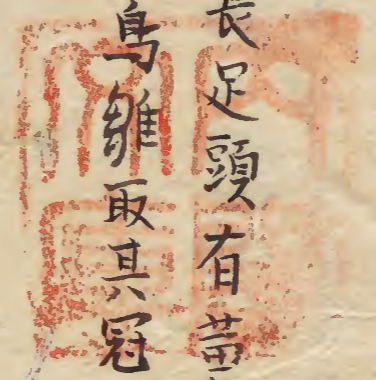 長足頭有
鳥雛取其冠